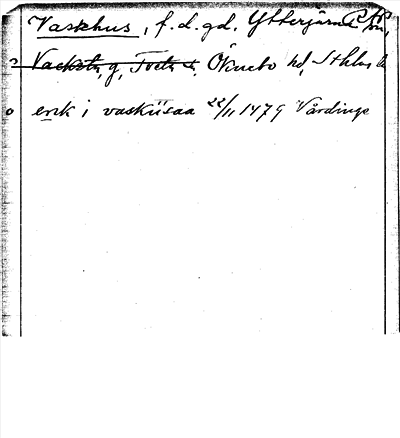 Vaskhus, f.d. gd. Ytterjärna sn,
Vacksta, g, Tveta s. Öknebo hd, Sthlms l.
erik i vasküsaa 22/11 1479 Vårdinge